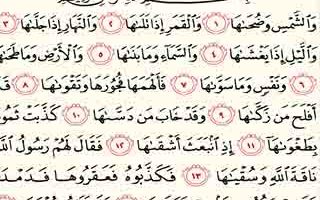 وَالشَّمْسِ وَضُحَىٰهَا ١ وَالْقَمَرِ إِذَا تَلَىٰهَا ٢ وَالنَّهَارِ إِذَا جَلَّىٰهَا ٣
وَالَّيْلِ إِذَا يَغْشَىٰهَا ٤ وَالسَّمَآءِ وَمَا بَنَىٰهَا ٥ وَالْأَرْضِ وَمَا طَحَىٰهَا
٦ وَنَفْسٍ وَمَا سَوَّىٰهَا ٧ فَأَلْهَمَهَا فُجُورَهَا وَتَقْوَىٰهَا ٨ قَدْ
أَفْلَحَ مَن زَكَّىٰهَا ٩ وَقَدْ خَابَ مَن دَسَّىٰهَا ١٠ كَذَّبَتْ ثَمُو
بِطَغْوَىٰهَآ ١١ إِذِ انۢبَعَثَ أَشْقَىٰهَا ١٢ فَقَالَ لَهُمْ رَسُولُ اللَّهِ
نَاقَةَ اللَّهِ وَسُقْيَىٰهَا ١٣ فَكَذَّبُوهُ فَعَقَرُوهَا فَدَمْدَ